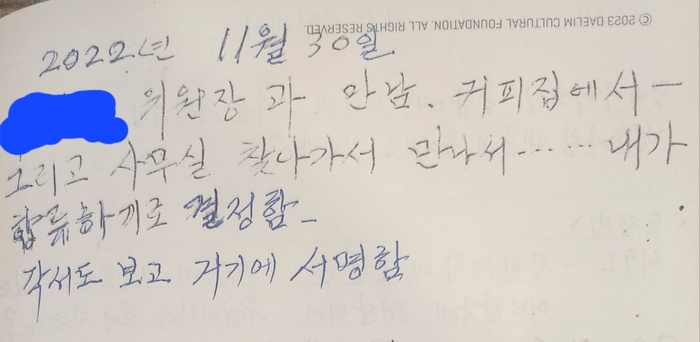 © 2023 DAELIM CULTURAL FOUNDATION. ALL RIGHTS RESERVED.
2022년 11월 30일
위원장과 만남. 커피집에서 —
그리고 사무실 찾아가서 만나서...... 내가
합류하기로 결정함 —
각서도 보고 거기에 서명함